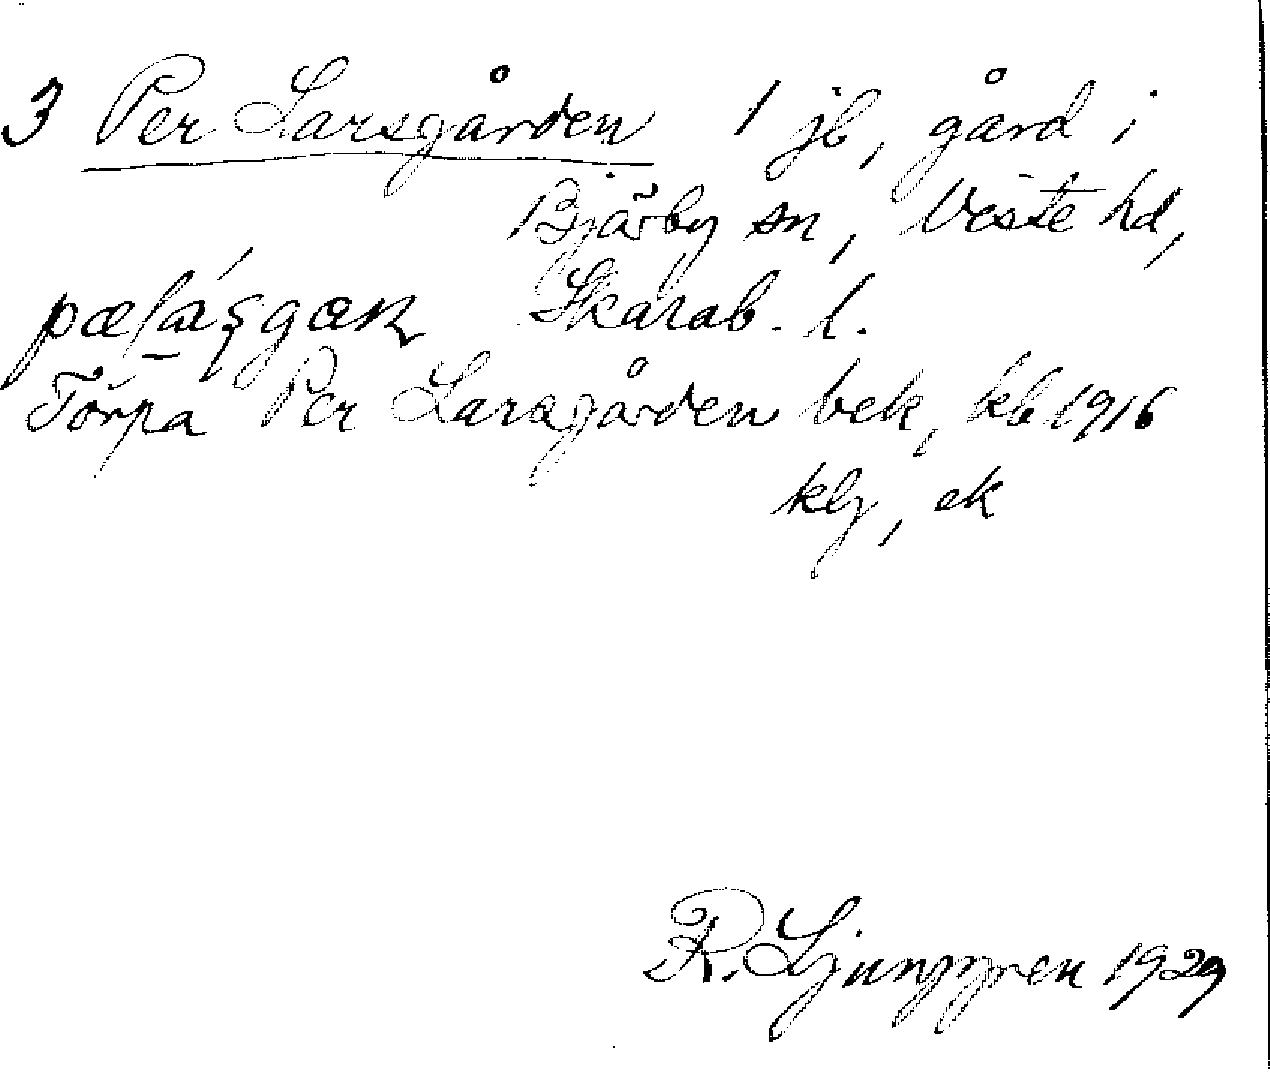 3 Per Larsgården 1 jb, gård i
Bjärby sn, Viste hd,
Skarab. l.
Torpa Per Larsgården bek, kb 1916
klg, ek
R. Ljunggren 1929